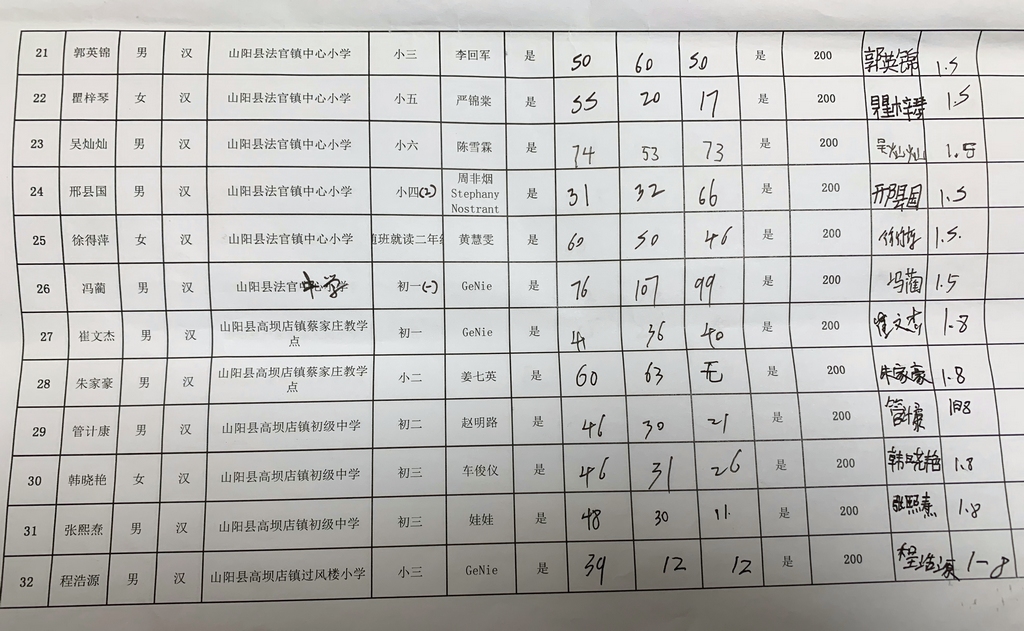 21 郭英锦 男 汉 山阳县法官镇中心小学 小三 李回军 是 50 60 50 是 200 郭英锦 1.5
22 瞿梓琴 女 汉 山阳县法官镇中心小学 小五 严锦棠 是 55 20 17 是 200 瞿梓琴 1.5
23 吴灿灿 男 汉 山阳县法官镇中心小学 小六 陈雪霖 是 74 53 73 是 200 吴灿灿 1.5
24 邢县国 男 汉 山阳县法官镇中心小学 小四(2) 周非烟 Stephany Nostrant 是 31 32 66 是 200 邢县国 1.5
25 徐得萍 女 汉 山阳县法官镇中心小学 随班就读二年级 黄慧雯 是 60 50 46 是 200 徐得萍 1.5.
26 冯蔺 男 汉 山阳县法官中学 初一(一) GeNie 是 76 107 99 是 200 冯蔺 1.5
27 崔文杰 男 汉 山阳县高坝店镇蔡家庄教学点 初一 GeNie 是 41 36 40 是 200 崔文杰 1.8
28 朱家豪 男 汉 山阳县高坝店镇蔡家庄教学点 小二 姜七英 是 60 63 无 是 200 朱家豪 1.8
29 管计康 男 汉 山阳县高坝店镇初级中学 初二 赵明路 是 46 30 21 是 200 管计康
30 韩晓艳 女 汉 山阳县高坝店镇初级中学 初三 车俊仪 是 46 31 26 是 200 韩晓艳 1.8
31 张熙焘 男 汉 山阳县高坝店镇初级中学 初三 娃娃 是 48 30 11. 是 200 张熙焘 1.8
32 程浩源 男 汉 山阳县高坝店镇过风楼小学 小三 GeNie 是 39 12 12 是 200 程浩源 1-8